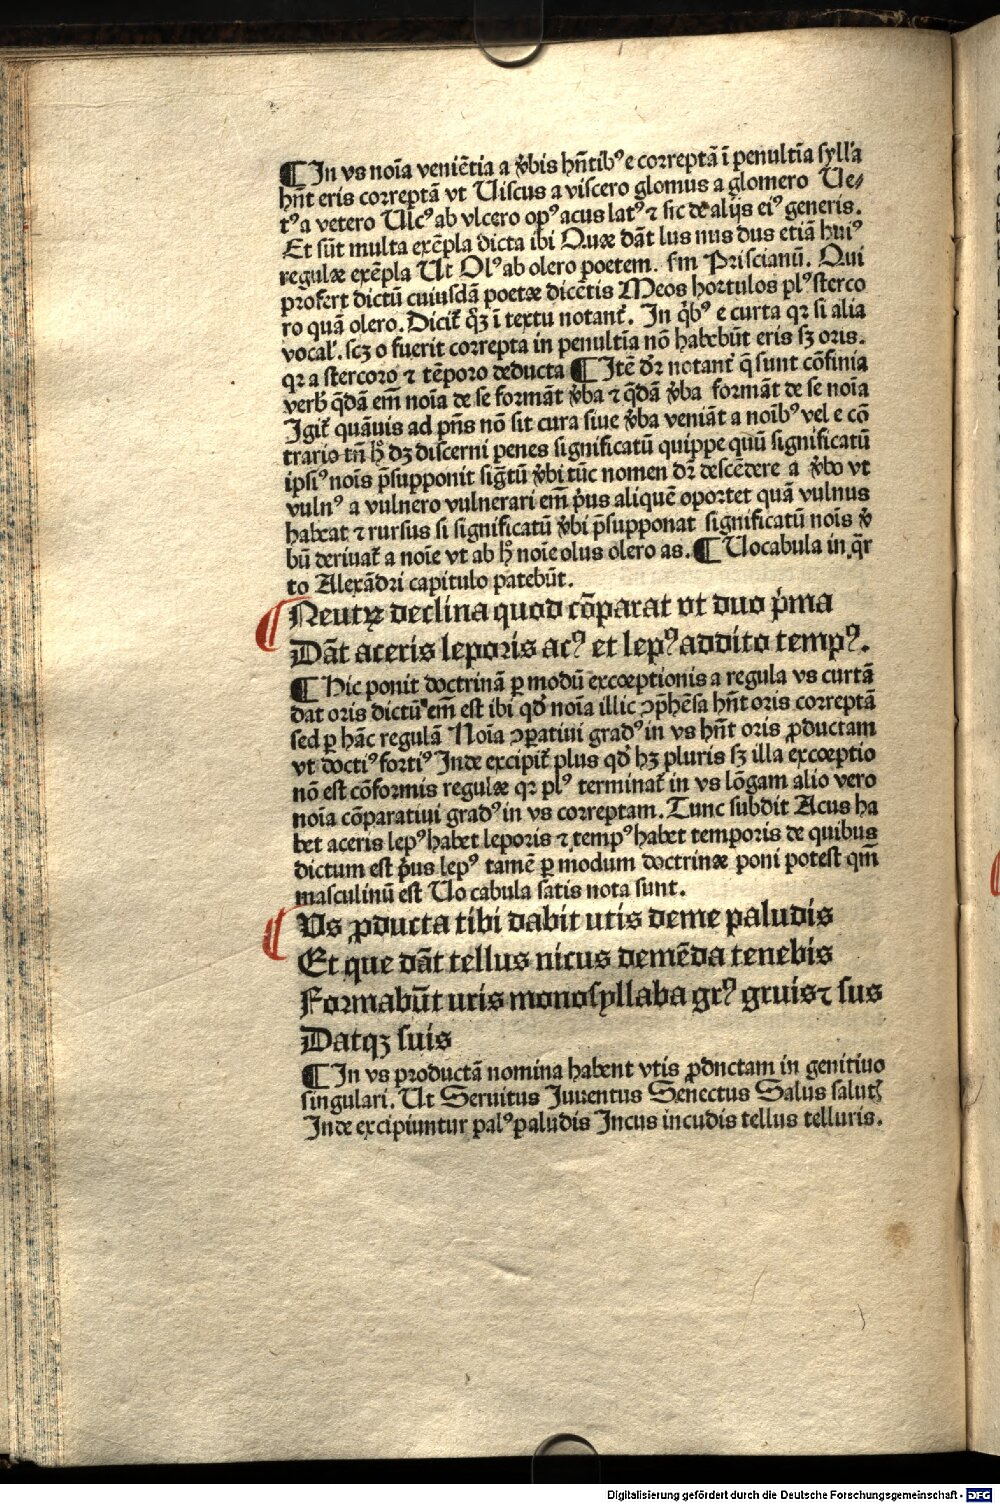 ¶ In vs noīa veniētia a v̓bis hn̄tibꝰ e correptā ī penultīa sylla
hn̄t eris correptā vt Viscus a viscero glomus a glomero Ve⸗
tꝰ a vetero Vlcꝰ ab vlcero opꝰ acus latꝰ ⁊ sic de alijs eiꝰ generis.
Et sūt multa exēpla dicta ibi Quæ dāt lus nus dus etiā huiꝰ
regulæ exēpla Vt Olꝰ ab olero poetem. sm̄ Priscianū. Qui
profert dictū cuiusdā poetæ dicētis Meos hortulos plꝰ sterco
ro quā olero. Dicit̄ q̄ꝫ ī textu notant̄. In q̄bꝰ e curta qꝛ si alia
vocal̕. scꝫ o fuerit correpta in penultīa nō habebūt eris sꝫ oris.
qꝛ a stercoro ⁊ tēporo deducta ¶ Itē dr̄ notant̄ q̄ sunt cōfinia
verb̕ q̄dā em̄ noīa de se formāt v̓ba ⁊ q̄dā v̓ba formāt de se noīa
Igit̄ quāuis ad pn̄s nō sit cura siue v̓ba veniāt a noībꝰ vel e cō
trario tn̄ hͦ dꝫ discerni penes significatū quippe quū significatū
ipsiꝰ noīs p̄supponit sigtū v̓bi tūc nomen dr̄ descēdere a v̓bo vt
vulnꝰ a vulnero vulnerari em̄ pͥus aliquē oportet quā vulnus
habeat ⁊ rursus si significatū v̓bi p̄supponat significatū noīs v̓
bū deriuat̄ a noīe vt ab hͦ noīe olus olero as. ¶ Vocabula in q̄r
to Alexādri capitulo patebūt.
Neutꝝ declina quod cōparat vt duo pͥma
Dāt aceris leporis acꝰ et lepꝰ addito tempꝰ.
¶ Hic ponit doctrinā ꝑ modū exceptionis a regula vs curtā
dat oris dictū em̄ est ibi qd̓ noīa illic ↄp̄hēsa hn̄t oris correptā
sed ꝑ hāc regulā Noīa ↄꝑatiui gradꝰ in vs hn̄t oris ꝓductam
vt doctiꝰ fortiꝰ Inde excipit̄ plus qd̓ hꝫ pluris sꝫ illa exceptio
nō est cōformis regulæ qꝛ plꝰ terminat̄ in vs lōgam alio vero
noīa cōparatiui gradꝰ in vs correptam. Tunc subdit Acus ha
bet aceris lepꝰ habet leporis ⁊ tempꝰ habet temporis de quibus
dictum est pͥus lepꝰ tamē ꝑ modum doctrinæ poni potest qm̄
masculinū est Vo cabula satis nota sunt.
Vs ꝓducta tibi dabit utis deme paludis
Et que dāt tellus nicus demēda tenebis
Formabūt uris monosyllaba grꝰ gruis ⁊ sus
Datqꝫ suis
¶ In vs productā nomina habent vtis ꝓdnctam in genitiuo
singulari. Vt Seruitus Iuuentus Senectus Salus salutꝭ
Inde excipiuntur palꝰ paludis Incus incudis tellus telluris.
Digitalisierung gefördert durch die Deutsche Forschungsgemeinschaft - DFG